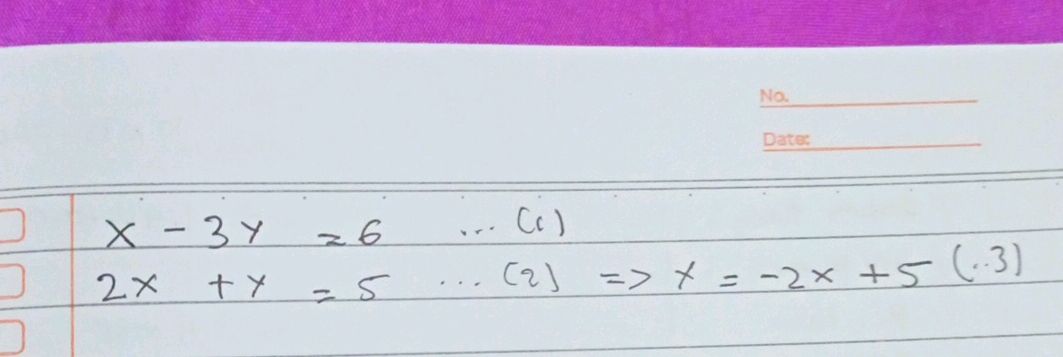 No.
Date:
x - 3y = 6 ... (1)
2x + y = 5 ... (2) => y = -2x + 5 (..3)